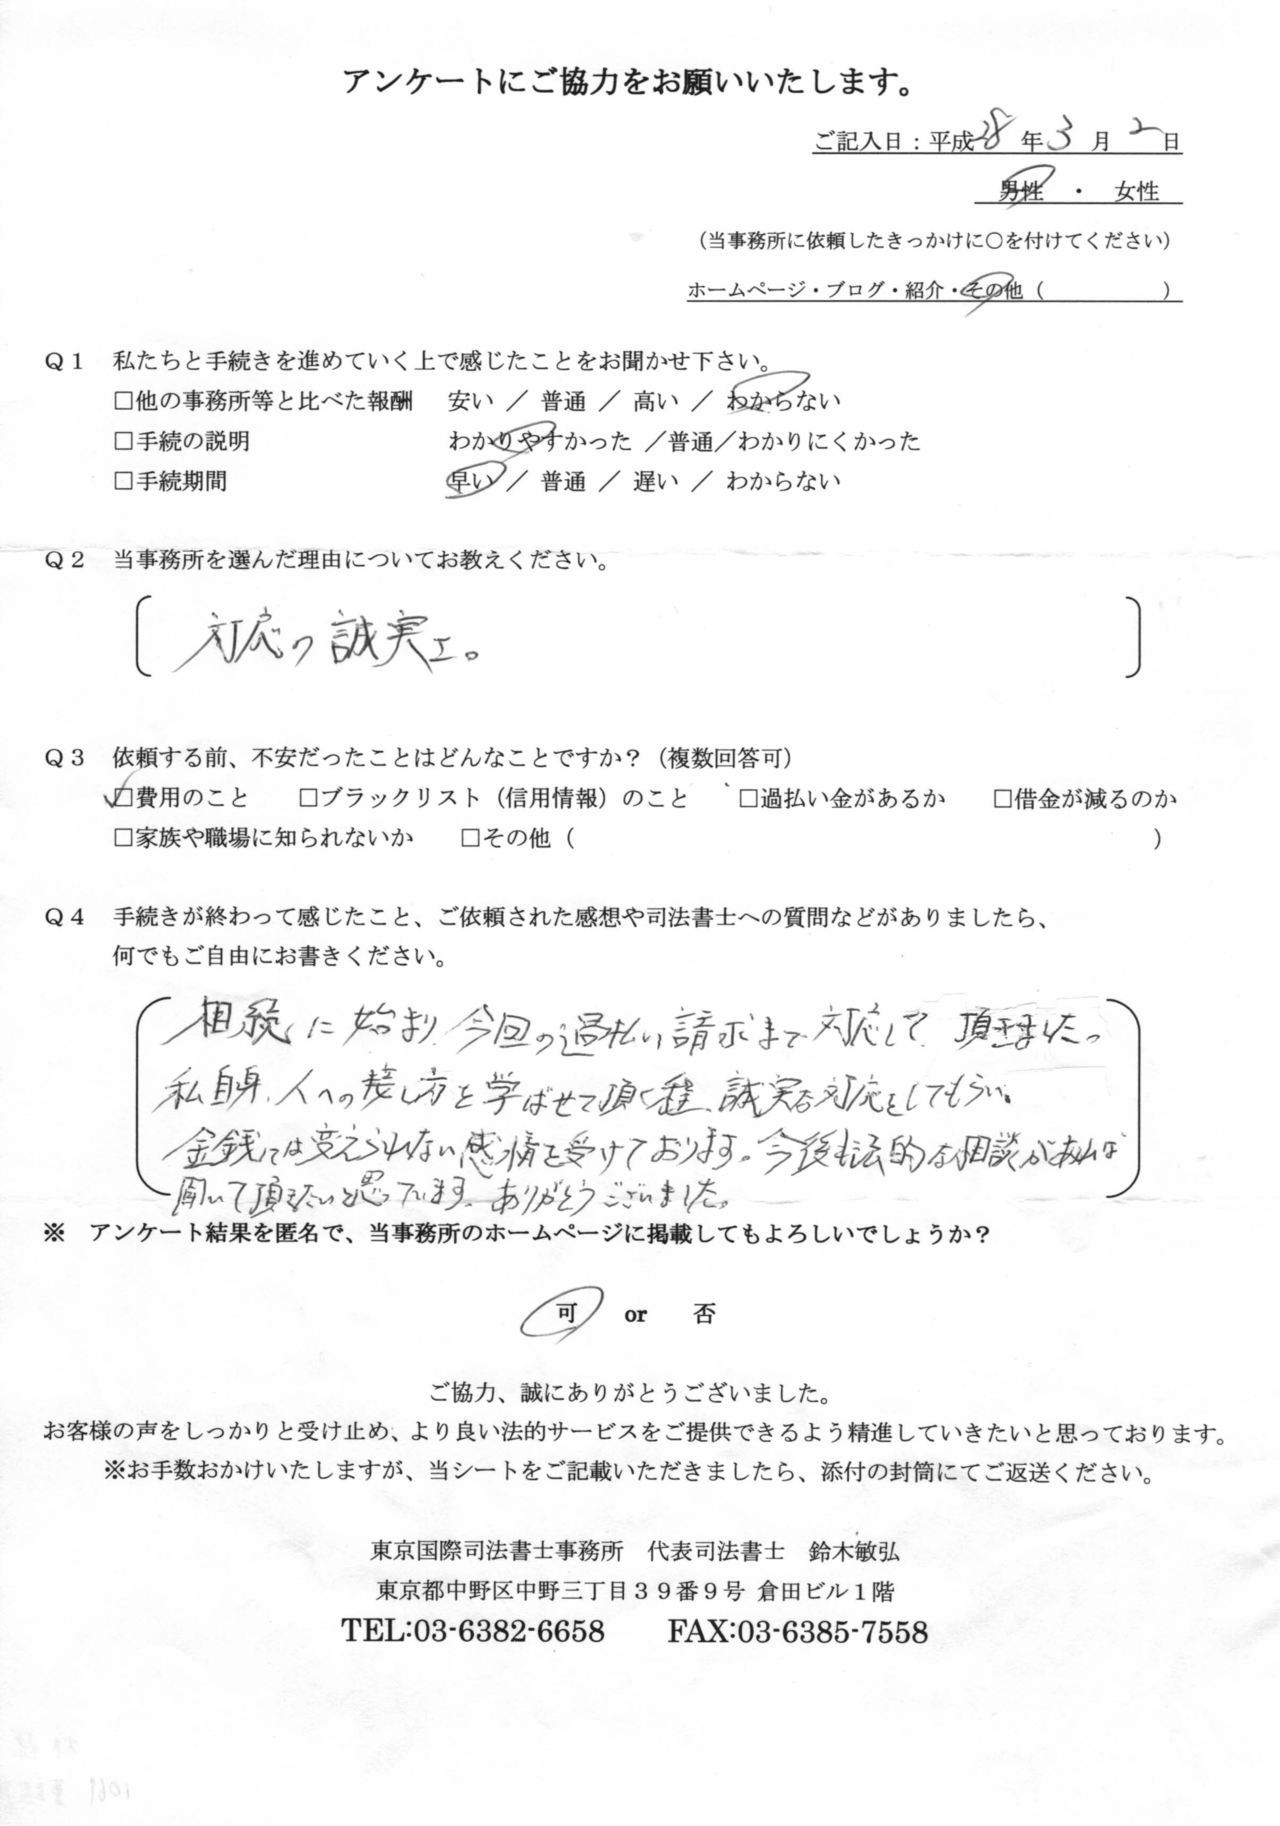 アンケートにご協力をお願いいたします。
ご記入日：平成28年3月2日
男性　・　女性
（当事務所に依頼したきっかけに○を付けてください）
ホームページ・ブログ・紹介・その他（　　　　　　）
Ｑ１　私たちと手続きを進めていく上で感じたことをお聞かせ下さい。
□他の事務所等と比べた報酬　安い ／ 普通 ／ 高い ／ わからない
□手続の説明　わかりやすかった ／普通／わかりにくかった
□手続期間　早い ／ 普通 ／ 遅い ／ わからない
Ｑ２　当事務所を選んだ理由についてお教えください。
対応の誠実さ。
Ｑ３　依頼する前、不安だったことはどんなことですか？（複数回答可）
☑費用のこと　□ブラックリスト（信用情報）のこと　□過払い金があるか　□借金が減るのか
□家族や職場に知られないか　□その他（　　　　　　）
Ｑ４　手続きが終わって感じたこと、ご依頼された感想や司法書士への質問などがありましたら、
何でもご自由にお書きください。
相続に始まり、今回の過払い請求まで対応して頂きました。
私自身、人への接し方を学ばせて頂く程、誠実な対応をしてもらい、
金銭には変えられない感情を受けております。今後も法的な相談があれば
聞いて頂きたいと思っています。ありがとうございました。
※　アンケート結果を匿名で、当事務所のホームページに掲載してもよろしいでしょうか？
可　or　否
ご協力、誠にありがとうございました。
お客様の声をしっかりと受け止め、より良い法的サービスをご提供できるよう精進していきたいと思っております。
※お手数おかけいたしますが、当シートをご記載いただきましたら、添付の封筒にてご返送ください。
東京国際司法書士事務所　代表司法書士　鈴木敏弘
東京都中野区中野三丁目３９番９号 倉田ビル１階
TEL:03-6382-6658　FAX:03-6385-7558